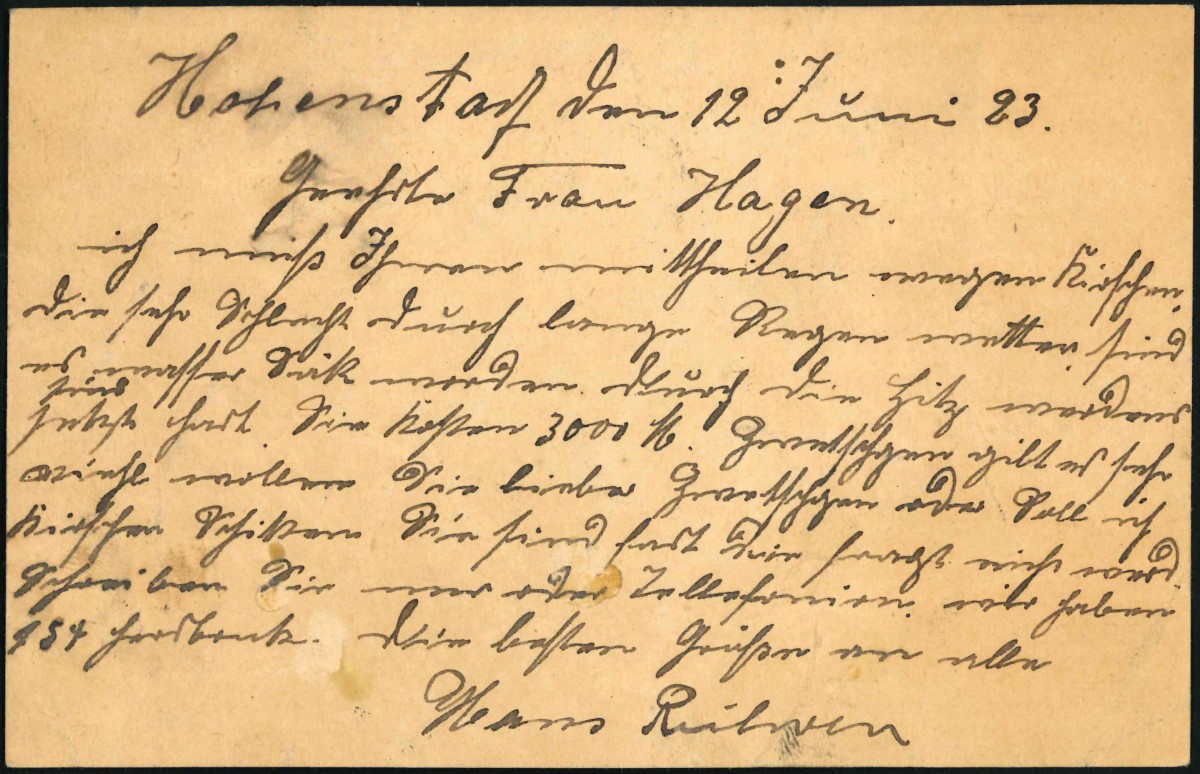 Hohenstadt den 12 Juni 23.
Geehrte Frau Hagen.
ich muß Ihnen mittheilen wegen Kirschen
die sehr Schlecht durch lange Regen wetter sind
es wasser Sük worden durch die Hitz werdens
sind
jetzt hart. Sie kosten 3000 M. Zwetschgen gilt es sehr
viehl wollen Sie lieber Zwetschgen oder Soll ich
Kirschen Schikken Sie sind fast die fracht nicht werd
Schreiben Sie mir oder Tellefonien wir haben
154 Hersbruk. Die besten Grüße an alle
Hans